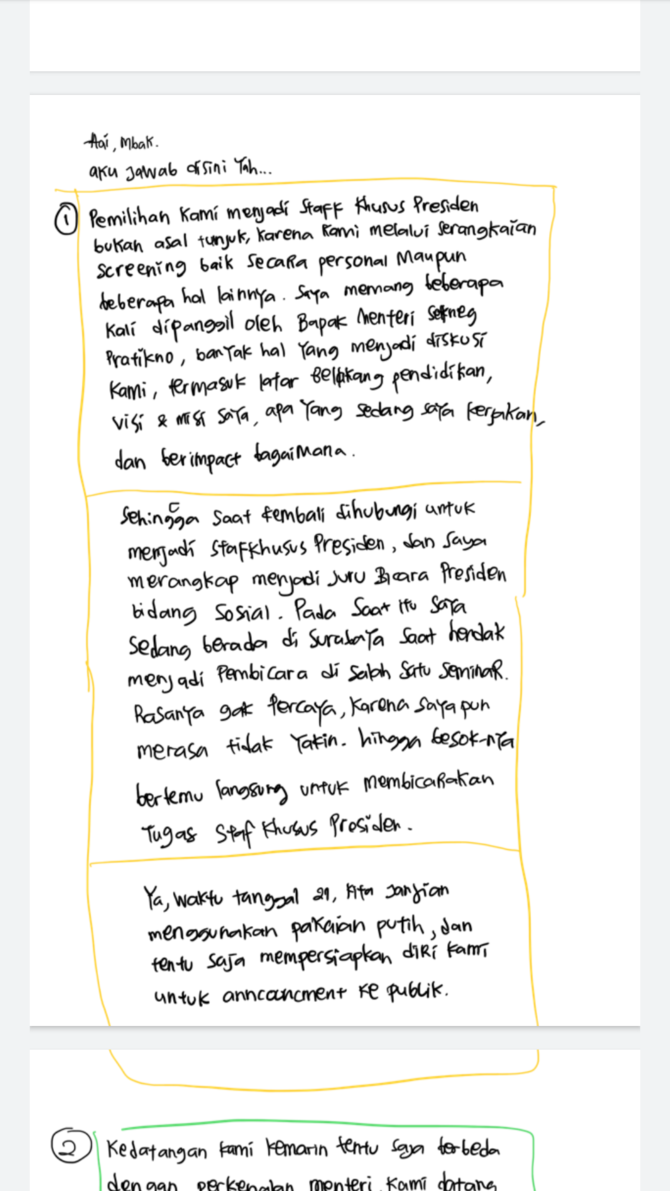 Hai, Mbak.
aku jawab disini Yah...
① Pemilihan Kami menjadi Staff Khusus Presiden
bukan asal tunjuk, karena kami melalui serangkaian
screening baik secara personal maupun
beberapa hal lainnya. Saya memang beberapa
kali dipanggil oleh Bapak Menteri Sekneg
Pratikno, banyak hal yang menjadi diskusi
kami, termasuk latar belakang pendidikan,
visi & misi saya, apa yang sedang saya kerjakan,
dan berimpact bagaimana.
Sehingga saat kembali dihubungi untuk
menjadi Staffkhusus Presiden, dan saya
merangkap menjadi Juru Bicara Presiden
bidang Sosial. Pada saat itu saya
sedang berada di Surabaya saat hendak
menjadi Pembicara di salah satu Seminar.
Rasanya gak percaya, karena saya pun
merasa tidak yakin. hingga besok-nya
bertemu langsung untuk membicarakan
Tugas Staf Khusus Presiden.
Ya, waktu tanggal 21, kita janjian
menggunakan pakaian putih, dan
tentu saja mempersiapkan diri kami
untuk anncancment ke publik.
② Kedatangan kami kemarin tentu saja berbeda
dengan perkenalan menteri. Kami datang